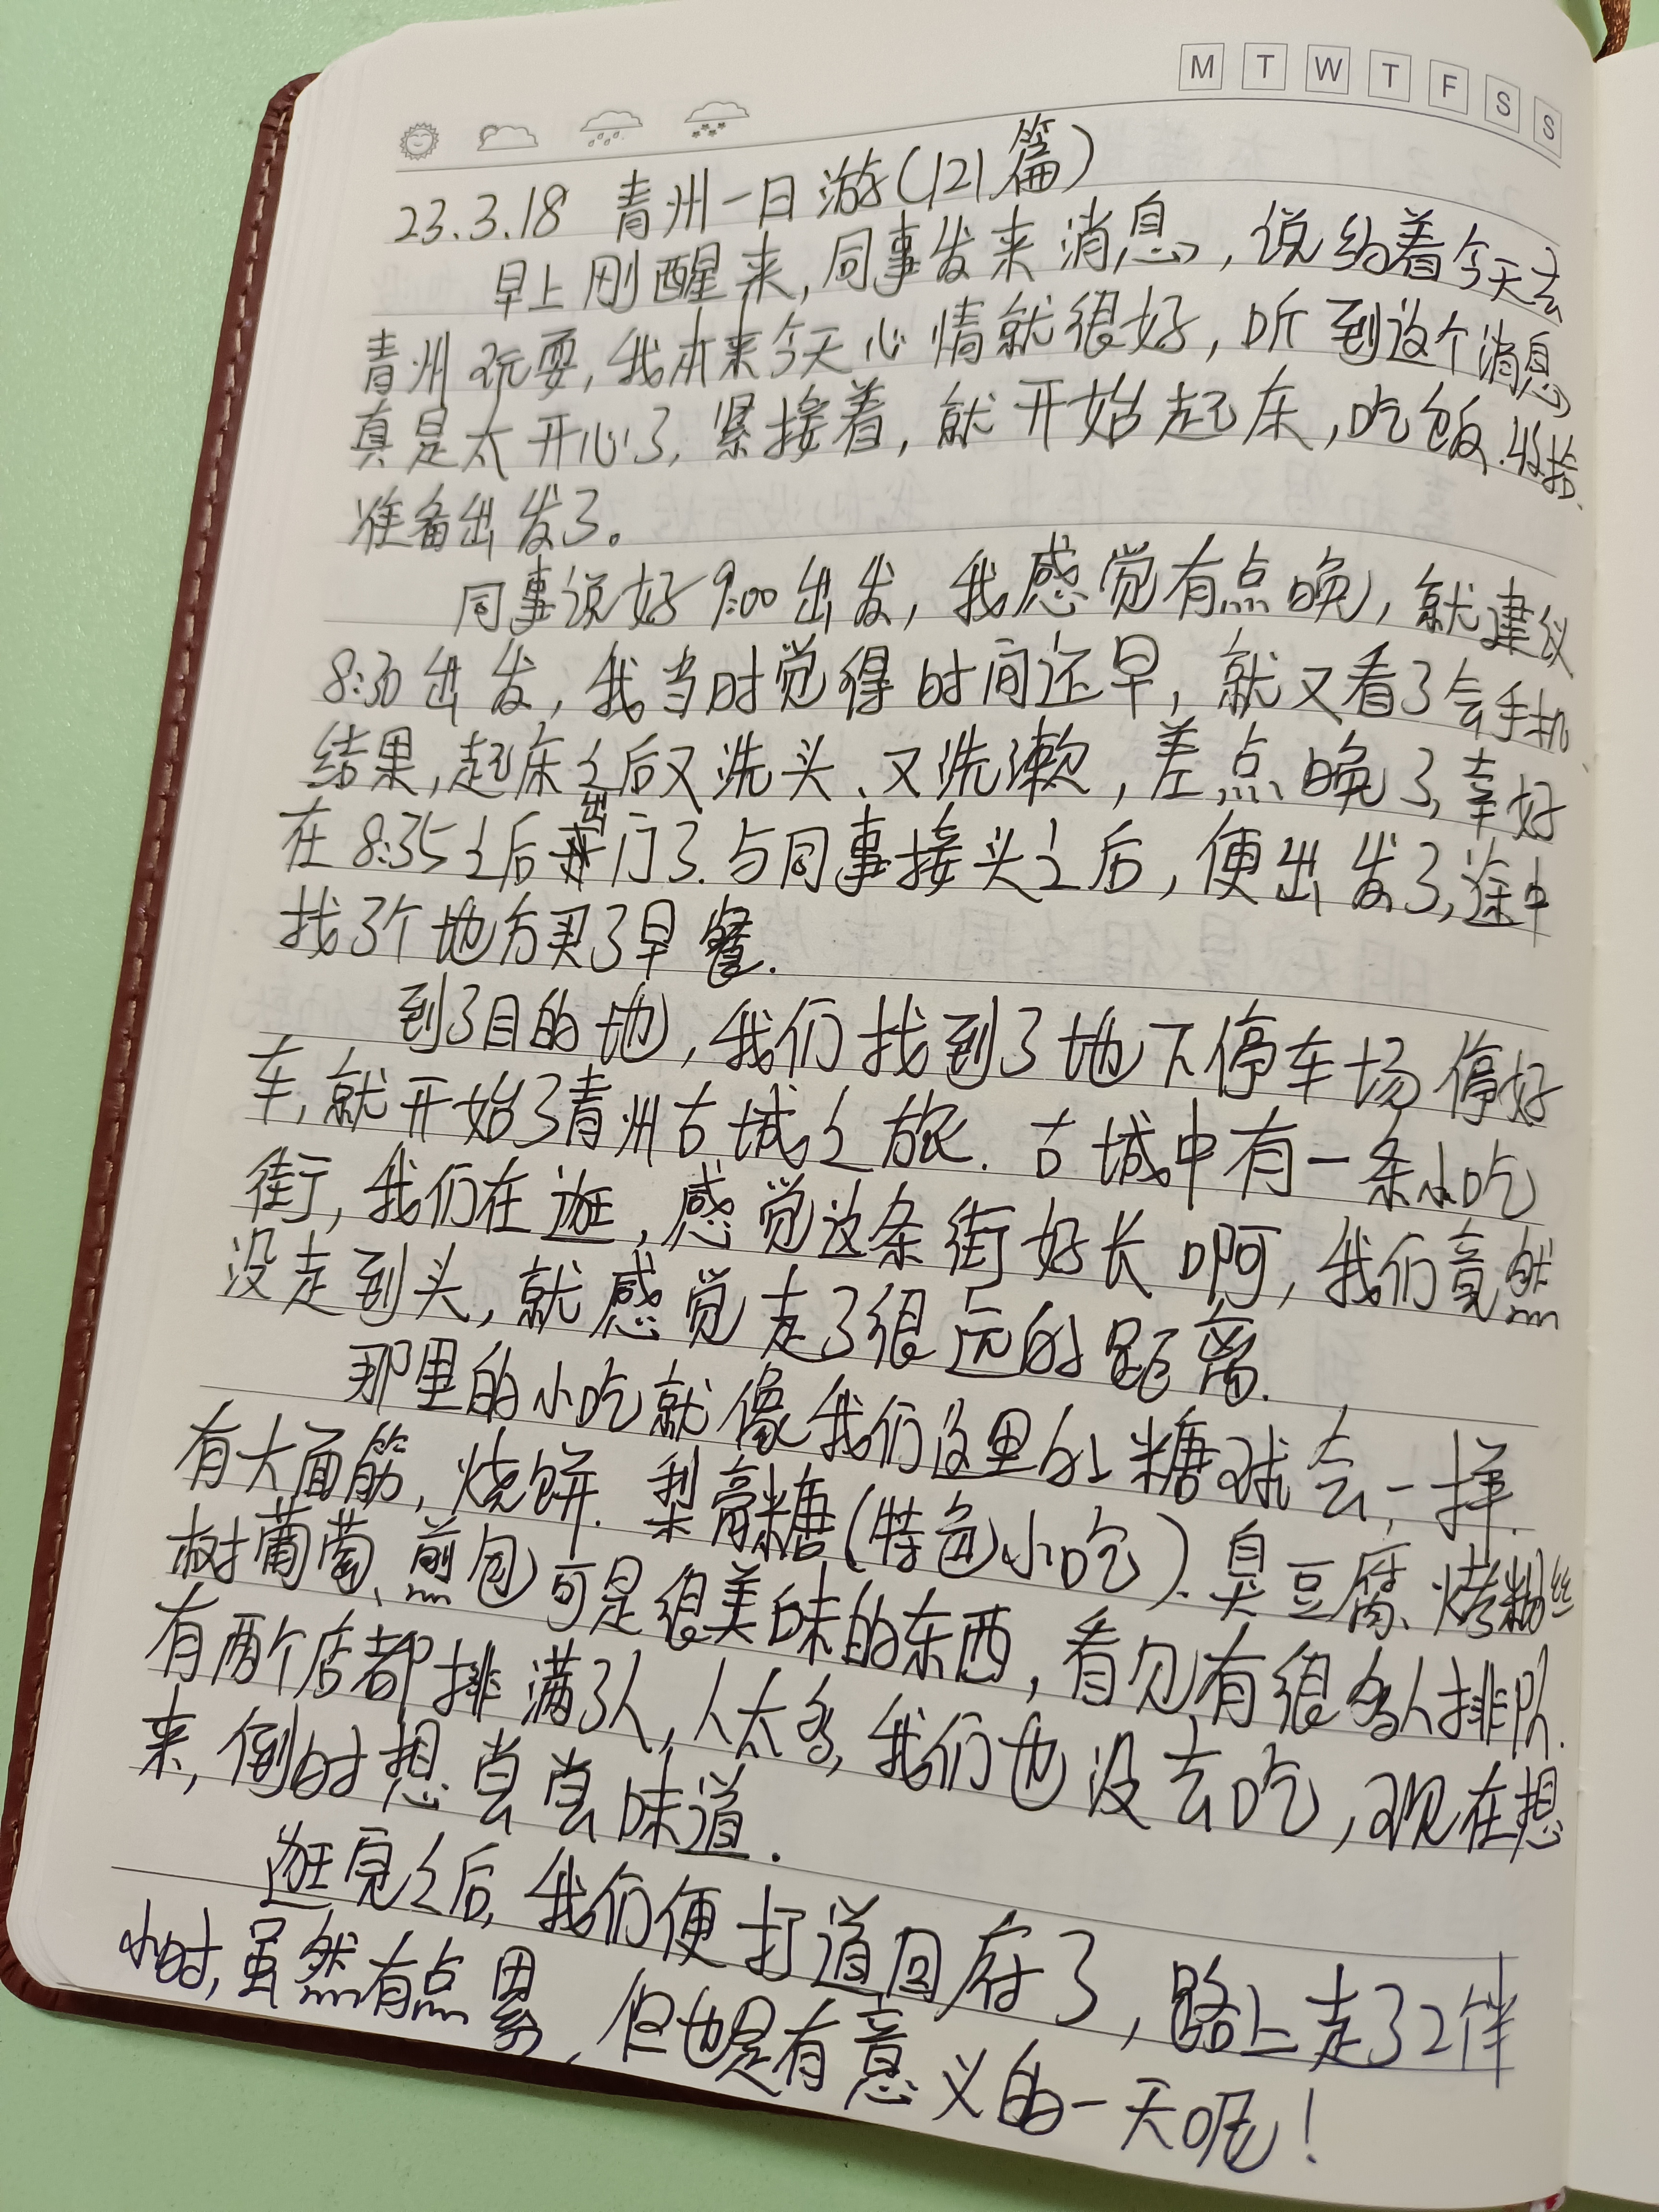 M T W T F S S
23.3.18 青州一日游(121篇)
早上刚醒来,同事发来消息,说约着今天去
青州玩耍,我本来今天心情就很好,听到这个消息
真是太开心了,紧接着,就开始起床,吃饭.收拾.
准备出发了。
同事说好9:00出发,我感觉有点晚,就建议
8:30出发,我当时觉得时间还早,就又看了会手机
结果,起床之后又洗头、又洗漱,差点晚了,幸好
在8:35之后出门了.与同事接头之后,便出发了,途中
找了个地方买了早餐.
到了目的地,我们找到了地下停车场停好
车,就开始了青州古城之旅.古城中有一条小吃
街,我们在逛,感觉这条街好长啊,我们竟然
没走到头,就感觉走了很远的距离.
那里的小吃就像我们这里的糖球会一样.
有大面筋,烧饼.梨膏糖(特色小吃).臭豆腐、烤粉丝
树葡萄、煎包可是很美味的东西,看见有很多人排队.
有两个店都排满了人,人太多,我们也没去吃,现在想
来,倒时想尝尝味道.
逛完之后,我们便打道回府了,路上走了2伴
小时,虽然有点累,但也是有意义的一天呢!